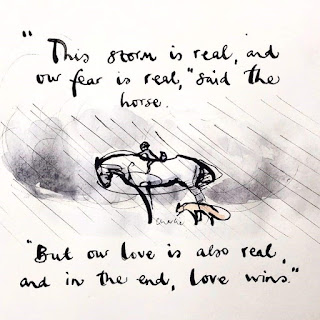 "This storm is real, and
our fear is real," said the
horse.
"But our love is also real,
and in the end, love wins."